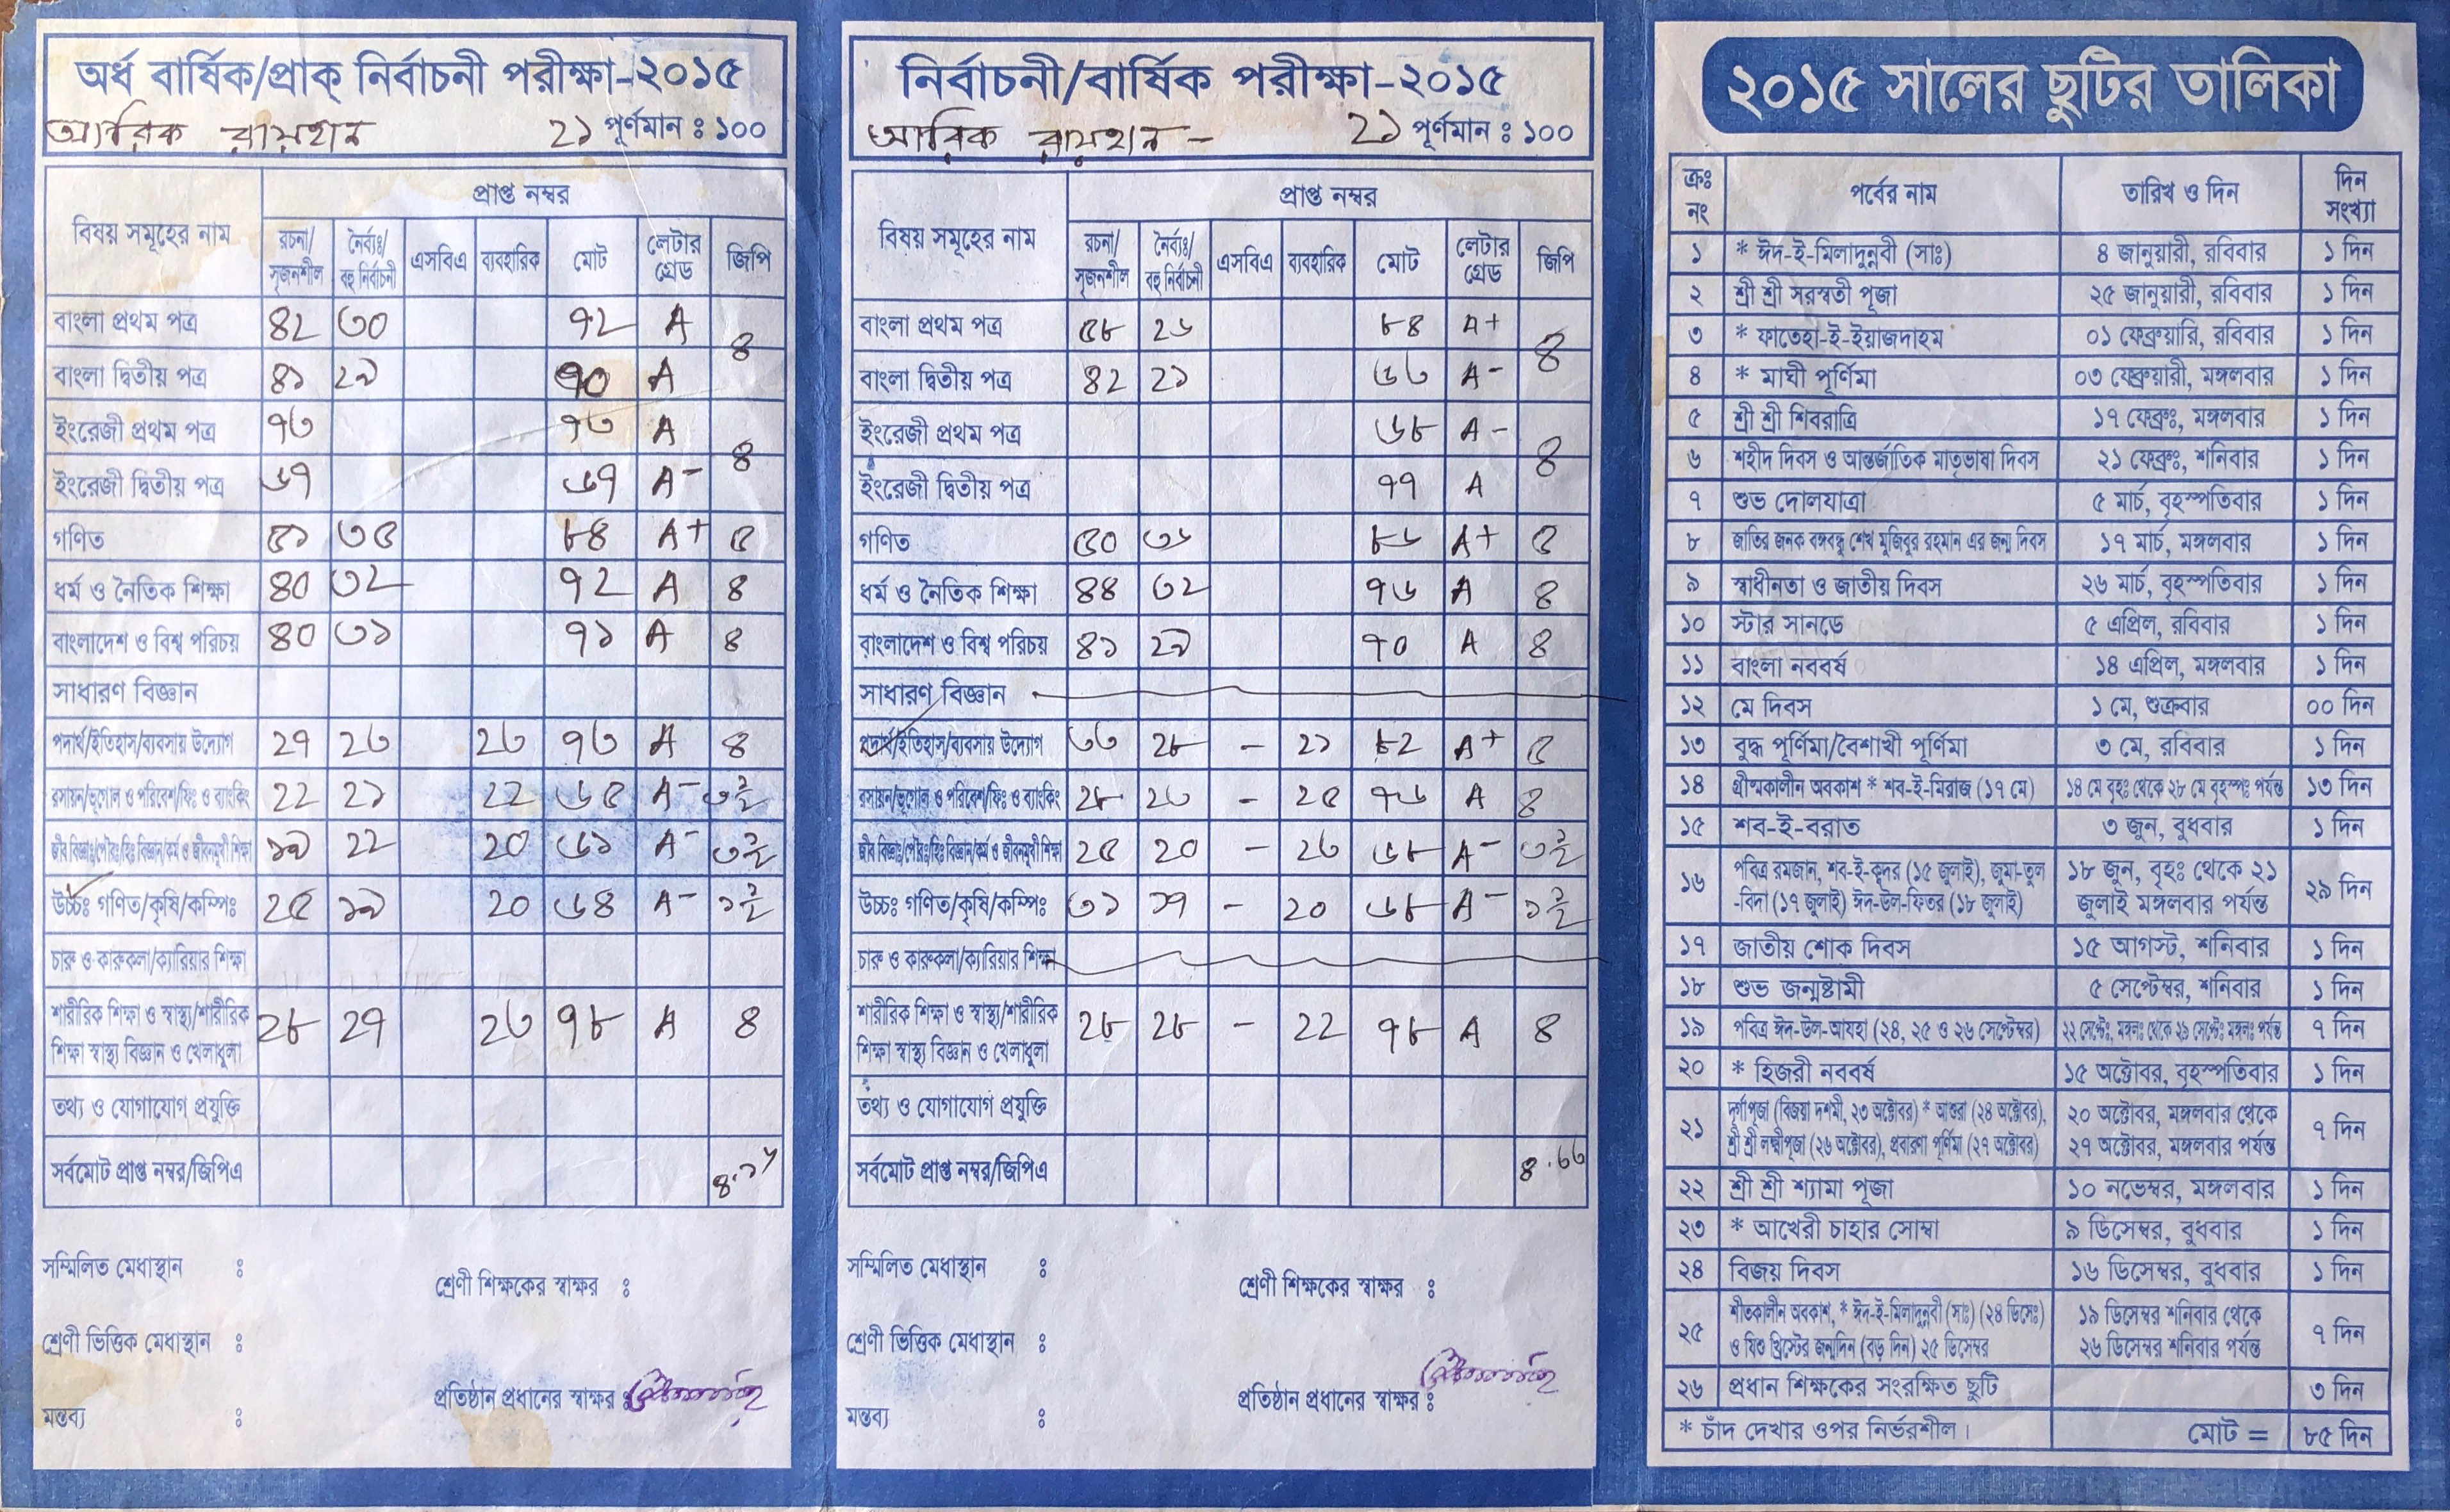 অর্ধ বার্ষিক/প্রাক্ নির্বাচনী পরীক্ষা-২০১৫
আরিক রায়হান ২১ পূর্ণমান ঃ ১০০
বিষয় সমূহের নাম প্রাপ্ত নম্বর
রচনা/সৃজনশীল নৈর্ব্যঃ/বহু নির্বাচনী এসবিএ ব্যবহারিক মোট লেটার গ্রেড জিপি
বাংলা প্রথম পত্র ৪২ ৩০ ৭২ A
৪
বাংলা দ্বিতীয় পত্র ৪১ ২৯ ৭০ A
ইংরেজী প্রথম পত্র ৭৩ ৭৩ A
৪
ইংরেজী দ্বিতীয় পত্র ৬৭ ৬৭ A-
গণিত ৫১ ৩৫ ৮৪ A+ ৫
ধর্ম ও নৈতিক শিক্ষা ৪০ ৩২ ৭২ A ৪
বাংলাদেশ ও বিশ্ব পরিচয় ৪০ ৩১ ৭১ A ৪
সাধারণ বিজ্ঞান
পদার্থ/ইতিহাস/ব্যবসায় উদ্যোগ ২৭ ২৩ ২৩ ৭৩ A ৪
রসায়ন/ভূগোল ও পরিবেশ/ফিঃ ও ব্যাংকিং ২২ ২১ ২২ ৬৫ A- ৩ ১/২
জীব বিজ্ঞাঃ/পৌরঃ/হিঃ বিজ্ঞান/কর্ম ও জীবনমূখী শিক্ষা ১৯ ২২ ২০ ৬১ A- ৩ ১/২
উচ্চঃ গণিত/কৃষি/কম্পিঃ ২৫ ১৯ ২০ ৬৪ A- ১ ১/২
চারু ও কারুকলা/ক্যারিয়ার শিক্ষা
শারীরিক শিক্ষা ও স্বাস্থ্য/শারীরিক
শিক্ষা স্বাস্থ্য বিজ্ঞান ও খেলাধুলা ২৮ ২৭ ২৩ ৭৮ A ৪
তথ্য ও যোগাযোগ প্রযুক্তি
সর্বমোট প্রাপ্ত নম্বর/জিপিএ
সম্মিলিত মেধাস্থান ঃ
শ্রেণী শিক্ষকের স্বাক্ষর ঃ
শ্রেণী ভিত্তিক মেধাস্থান ঃ
প্রতিষ্ঠান প্রধানের স্বাক্ষর ঃ
মন্তব্য ঃ
নির্বাচনী/বার্ষিক পরীক্ষা-২০১৫
আরিক রায়হান - ২১ পূর্ণমান ঃ ১০০
বিষয় সমূহের নাম প্রাপ্ত নম্বর
রচনা/সৃজনশীল নৈর্ব্যঃ/বহু নির্বাচনী এসবিএ ব্যবহারিক মোট লেটার গ্রেড জিপি
বাংলা প্রথম পত্র ৫৮ ২৬ ৮৪ A+
৪
বাংলা দ্বিতীয় পত্র ৪২ ২১ ৬৩ A-
ইংরেজী প্রথম পত্র ৬৮ A-
৪
ইংরেজী দ্বিতীয় পত্র ৭৭ A
গণিত ৫০ ৩৬ ৮৬ A+ ৫
ধর্ম ও নৈতিক শিক্ষা ৪৪ ৩২ ৭৬ A ৪
বাংলাদেশ ও বিশ্ব পরিচয় ৪১ ২৯ ৭০ A ৪
সাধারণ বিজ্ঞান
পদার্থ/ইতিহাস/ব্যবসায় উদ্যোগ ৩৩ ২৮ - ২১ ৮২ A+ ৫
রসায়ন/ভূগোল ও পরিবেশ/ফিঃ ও ব্যাংকিং ২৮ ২৩ - ২৫ ৭৬ A ৪
জীব বিজ্ঞাঃ/পৌরঃ/হিঃ বিজ্ঞান/কর্ম ও জীবনমূখী শিক্ষা ২৫ ২০ - ২৩ ৬৮ A- ৩ ১/২
উচ্চঃ গণিত/কৃষি/কম্পিঃ ৩১ ১৭ - ২০ ৬৮ A- ১ ১/২
চারু ও কারুকলা/ক্যারিয়ার শিক্ষা
শারীরিক শিক্ষা ও স্বাস্থ্য/শারীরিক
শিক্ষা স্বাস্থ্য বিজ্ঞান ও খেলাধুলা ২৮ ২৮ - ২২ ৭৮ A ৪
তথ্য ও যোগাযোগ প্রযুক্তি
সর্বমোট প্রাপ্ত নম্বর/জিপিএ
সম্মিলিত মেধাস্থান ঃ
শ্রেণী শিক্ষকের স্বাক্ষর ঃ
শ্রেণী ভিত্তিক মেধাস্থান ঃ
প্রতিষ্ঠান প্রধানের স্বাক্ষর ঃ
মন্তব্য ঃ
২০১৫ সালের ছুটির তালিকা
ক্রঃ নং পর্বের নাম তারিখ ও দিন দিন সংখ্যা
১ * ঈদ-ই-মিলাদুন্নবী (সাঃ) ৪ জানুয়ারী, রবিবার ১ দিন
২ শ্রী শ্রী সরস্বতী পূজা ২৫ জানুয়ারী, রবিবার ১ দিন
৩ * ফাতেহা-ই-ইয়াজদাহম ০১ ফেব্রুয়ারি, রবিবার ১ দিন
৪ * মাঘী পূর্ণিমা ০৩ ফেব্রুয়ারী, মঙ্গলবার ১ দিন
৫ শ্রী শ্রী শিবরাত্রি ১৭ ফেব্রুঃ, মঙ্গলবার ১ দিন
৬ শহীদ দিবস ও আন্তর্জাতিক মাতৃভাষা দিবস ২১ ফেব্রুঃ, শনিবার ১ দিন
৭ শুভ দোলযাত্রা ৫ মার্চ, বৃহস্পতিবার ১ দিন
৮ জাতির জনক বঙ্গবন্ধু শেখ মুজিবুর রহমান এর জন্ম দিবস ১৭ মার্চ, মঙ্গলবার ১ দিন
৯ স্বাধীনতা ও জাতীয় দিবস ২৬ মার্চ, বৃহস্পতিবার ১ দিন
১০ স্টার সানডে ৫ এপ্রিল, রবিবার ১ দিন
১১ বাংলা নববর্ষ ১৪ এপ্রিল, মঙ্গলবার ১ দিন
১২ মে দিবস ১ মে, শুক্রবার ০০ দিন
১৩ বুদ্ধ পূর্ণিমা/বৈশাখী পূর্ণিমা ৩ মে, রবিবার ১ দিন
১৪ গ্রীষ্মকালীন অবকাশ * শব-ই-মিরাজ (১৭ মে) ১৪ মে বৃহঃ থেকে ২৮ মে বৃহস্পঃ পর্যন্ত ১৩ দিন
১৫ শব-ই-বরাত ৩ জুন, বুধবার ১ দিন
১৬ পবিত্র রমজান, শব-ই-ক্বদর (১৫ জুলাই), জুমা-তুল ১৮ জুন, বৃহঃ থেকে ২১ ২৯ দিন
-বিদা (১৭ জুলাই) ঈদ-উল-ফিতর (১৮ জুলাই) জুলাই মঙ্গলবার পর্যন্ত
১৭ জাতীয় শোক দিবস ১৫ আগস্ট, শনিবার ১ দিন
১৮ শুভ জন্মাষ্টামী ৫ সেপ্টেম্বর, শনিবার ১ দিন
১৯ পবিত্র ঈদ-উল-আযহা (২৪, ২৫ ও ২৬ সেপ্টেম্বর) ২২ সেপ্টেঃ, মঙ্গলঃ থেকে ২৯ সেপ্টেঃ মঙ্গলঃ পর্যন্ত ৭ দিন
২০ * হিজরী নববর্ষ ১৫ অক্টোবর, বৃহস্পতিবার ১ দিন
২১ দূর্গাপূজা (বিজয়া দশমী, ২৩ অক্টোবর) * আশুরা (২৪ অক্টোবর), ২০ অক্টোবর, মঙ্গলবার থেকে ৭ দিন
শ্রী শ্রী লক্ষীপূজা (২৬ অক্টোবর), প্রবারণা পূর্ণিমা (২৭ অক্টোবর) ২৭ অক্টোবর, মঙ্গলবার পর্যন্ত
২২ শ্রী শ্রী শ্যামা পূজা ১০ নভেম্বর, মঙ্গলবার ১ দিন
২৩ * আখেরী চাহার সোম্বা ৯ ডিসেম্বর, বুধবার ১ দিন
২৪ বিজয় দিবস ১৬ ডিসেম্বর, বুধবার ১ দিন
২৫ শীতকালীন অবকাশ, * ঈদ-ই-মিলাদুন্নবী (সাঃ) (২৪ ডিসেঃ) ১৯ ডিসেম্বর শনিবার থেকে ৭ দিন
ও যিশু খ্রিস্টের জন্মদিন (বড় দিন) ২৫ ডিসেম্বর ২৬ ডিসেম্বর শনিবার পর্যন্ত
২৬ প্রধান শিক্ষকের সংরক্ষিত ছুটি ৩ দিন
* চাঁদ দেখার ওপর নির্ভরশীল। মোট = ৮৫ দিন